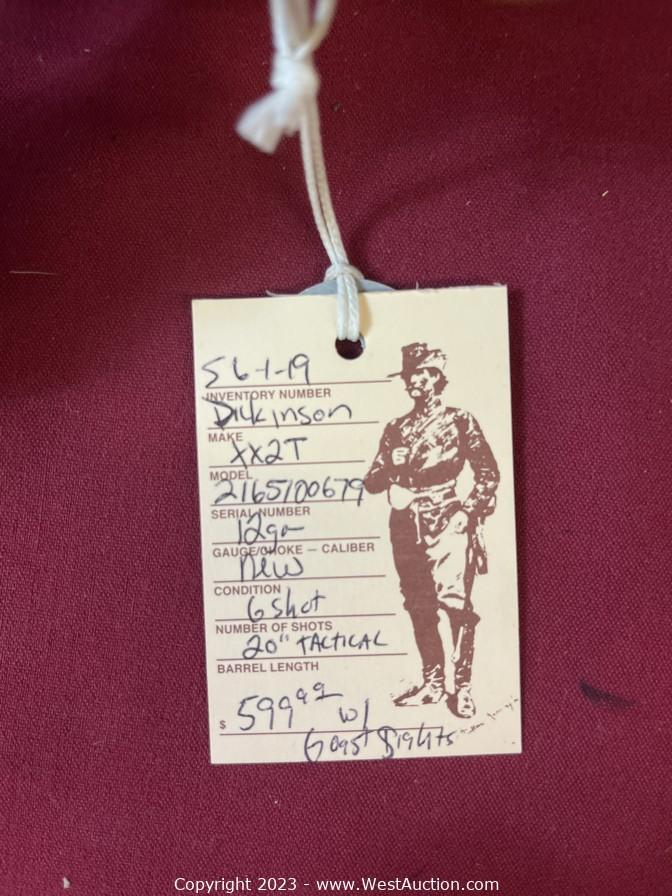 56-1-19
INVENTORY NUMBER
Dickinson
MAKE
XX2T
MODEL
2165100679
SERIAL NUMBER
12ga
GAUGE/CHOKE — CALIBER
New
CONDITION
6 shot
NUMBER OF SHOTS
20" TACTICAL
BARREL LENGTH
$ 599⁹⁹ w/
Sights
Copyright 2023 - www.WestAuction.com